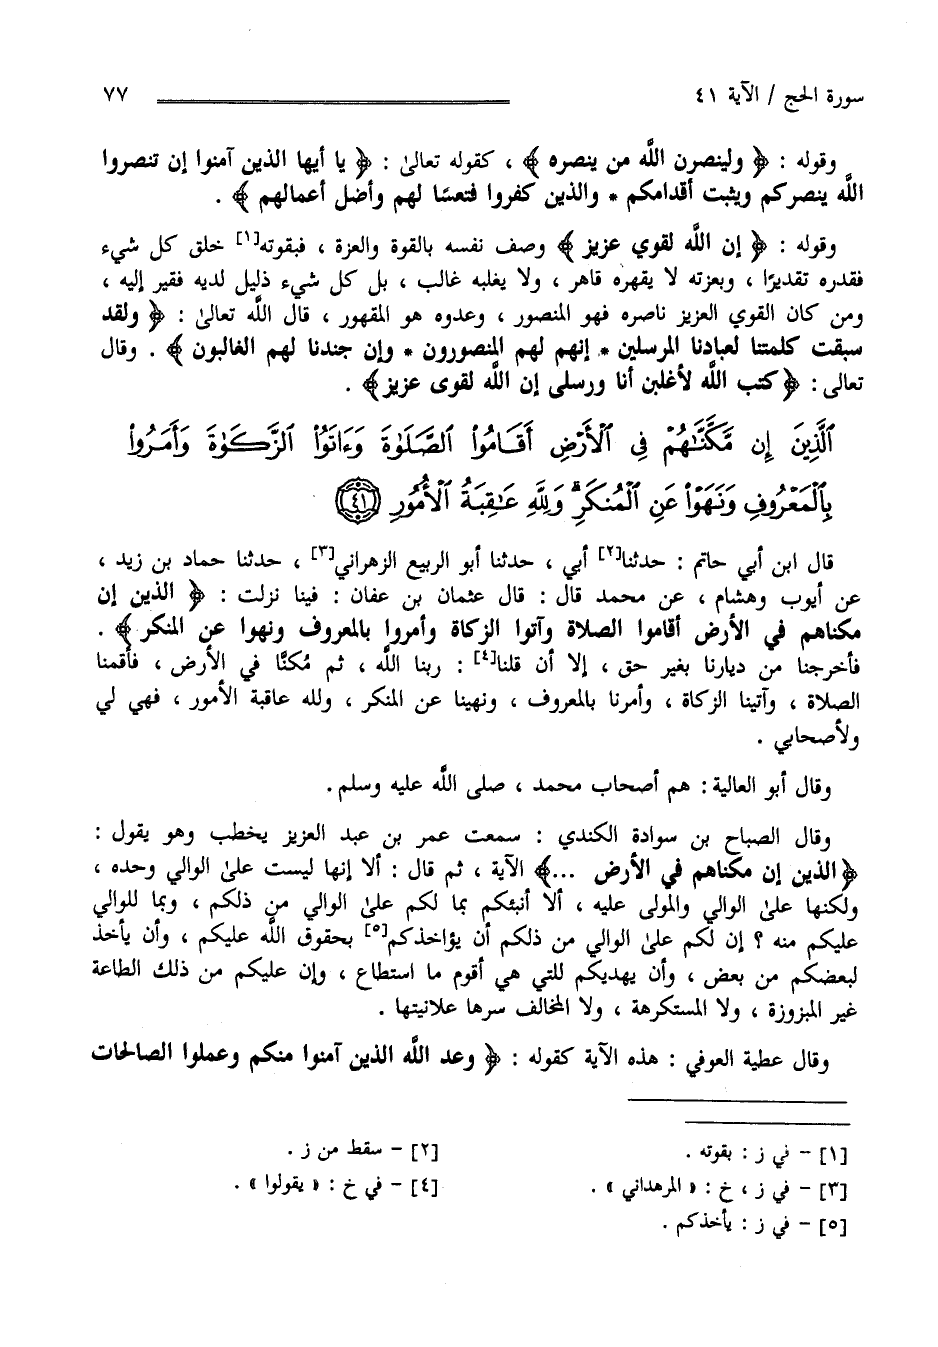 سورة الحج / الآية ٤١ ٧٧
وقوله : ﴿ ولينصرن اللَّه من ينصره ﴾ ، كقوله تعالىٰ : ﴿ يا أيها الذين آمنوا إن تنصروا
اللَّه ينصركم ويثبت أقدامكم * والذين كفروا فتعسًا لهم وأضل أعمالهم ﴾ .
وقوله : ﴿ إن اللَّه لقوي عزيز ﴾ وصف نفسه بالقوة والعزة ، فبقوته[١] خلق كل شيء
فقدره تقديرًا ، وبعزته لا يقهره قاهر ، ولا يغلبه غالب ، بل كل شيء ذليل لديه فقير إليه ،
ومن كان القوي العزيز ناصره فهو المنصور ، وعدوه هو المقهور ، قال اللَّه تعالىٰ : ﴿ ولقد
سبقت كلمتنا لعبادنا المرسلين * إنهم لهم المنصورون * وإن جندنا لهم الغالبون ﴾ . وقال
تعالى : ﴿ كتب اللَّه لأغلبن أنا ورسلى إن اللَّه لقوى عزيز﴾ .
ٱلَّذِينَ إِن مَّكَّنَّٰهُمۡ فِي ٱلۡأَرۡضِ أَقَامُواْ ٱلصَّلَوٰةَ وَءَاتَوُاْ ٱلزَّكَوٰةَ وَأَمَرُواْ
بِٱلۡمَعۡرُوفِ وَنَهَوۡاْ عَنِ ٱلۡمُنكَرِۗ وَلِلَّهِ عَٰقِبَةُ ٱلۡأُمُورِ ٤١
قال ابن أبي حاتم : حدثنا[٢] أبي ، حدثنا أبو الربيع الزهراني[٣] ، حدثنا حماد بن زيد ،
عن أيوب وهشام ، عن محمد قال : قال عثمان بن عفان : فينا نزلت : ﴿ الذين إن
مكناهم في الأرض أقاموا الصلاة وآتوا الزكاة وأمروا بالمعروف ونهوا عن المنكر ﴾ .
فأخرجنا من ديارنا بغير حق ، إلا أن قلنا[٤] : ربنا اللَّه ، ثم مُكنَّا في الأرض ، فأقمنا
الصلاة ، وآتينا الزكاة ، وأمرنا بالمعروف ، ونهينا عن المنكر ، ولله عاقبة الأمور ، فهي لي
ولأصحابي .
وقال أبو العالية : هم أصحاب محمد ، صلى اللَّه عليه وسلم .
وقال الصباح بن سوادة الكندي : سمعت عمر بن عبد العزيز يخطب وهو يقول :
﴿الذين إن مكناهم في الأرض ...﴾ الآية ، ثم قال : ألا إنها ليست علىٰ الوالي وحده ،
ولكنها علىٰ الوالي والمولى عليه ، ألا أنبئكم بما لكم علىٰ الوالي من ذلكم ، وبما للوالي
عليكم منه ؟ إن لكم علىٰ الوالي من ذلكم أن يؤاخذكم[٥] بحقوق اللَّه عليكم ، وأن يأخذ
لبعضكم من بعض ، وأن يهديكم للتي هي أقوم ما استطاع ، وإن عليكم من ذلك الطاعة
غير المبزوزة ، ولا المستكرهة ، ولا المخالف سرها علانيتها .
وقال عطية العوفي : هذه الآية كقوله : ﴿ وعد اللَّه الذين آمنوا منكم وعملوا الصالحات
[١] – في ز : بقوته . [٢] – سقط من ز .
[٣] – في ز ، خ : « المرهداني » . [٤] – في خ : « يقولوا » .
[٥] – في ز : يأخذكم .